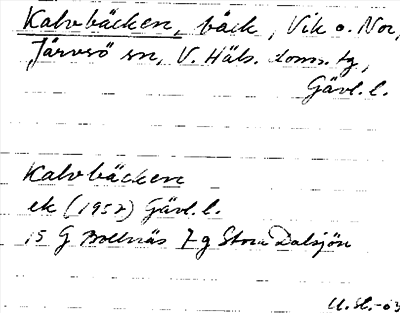 Kalvbäcken, bäck, Vik o. Nor,
Järvsö sn, V. Häls. doms. tg,
Gävl. l.
Kalvbäcken
ek (1952) Gävl. l.
15 G Bollnäs 7 g Stora Dalsjön
U. St. -63